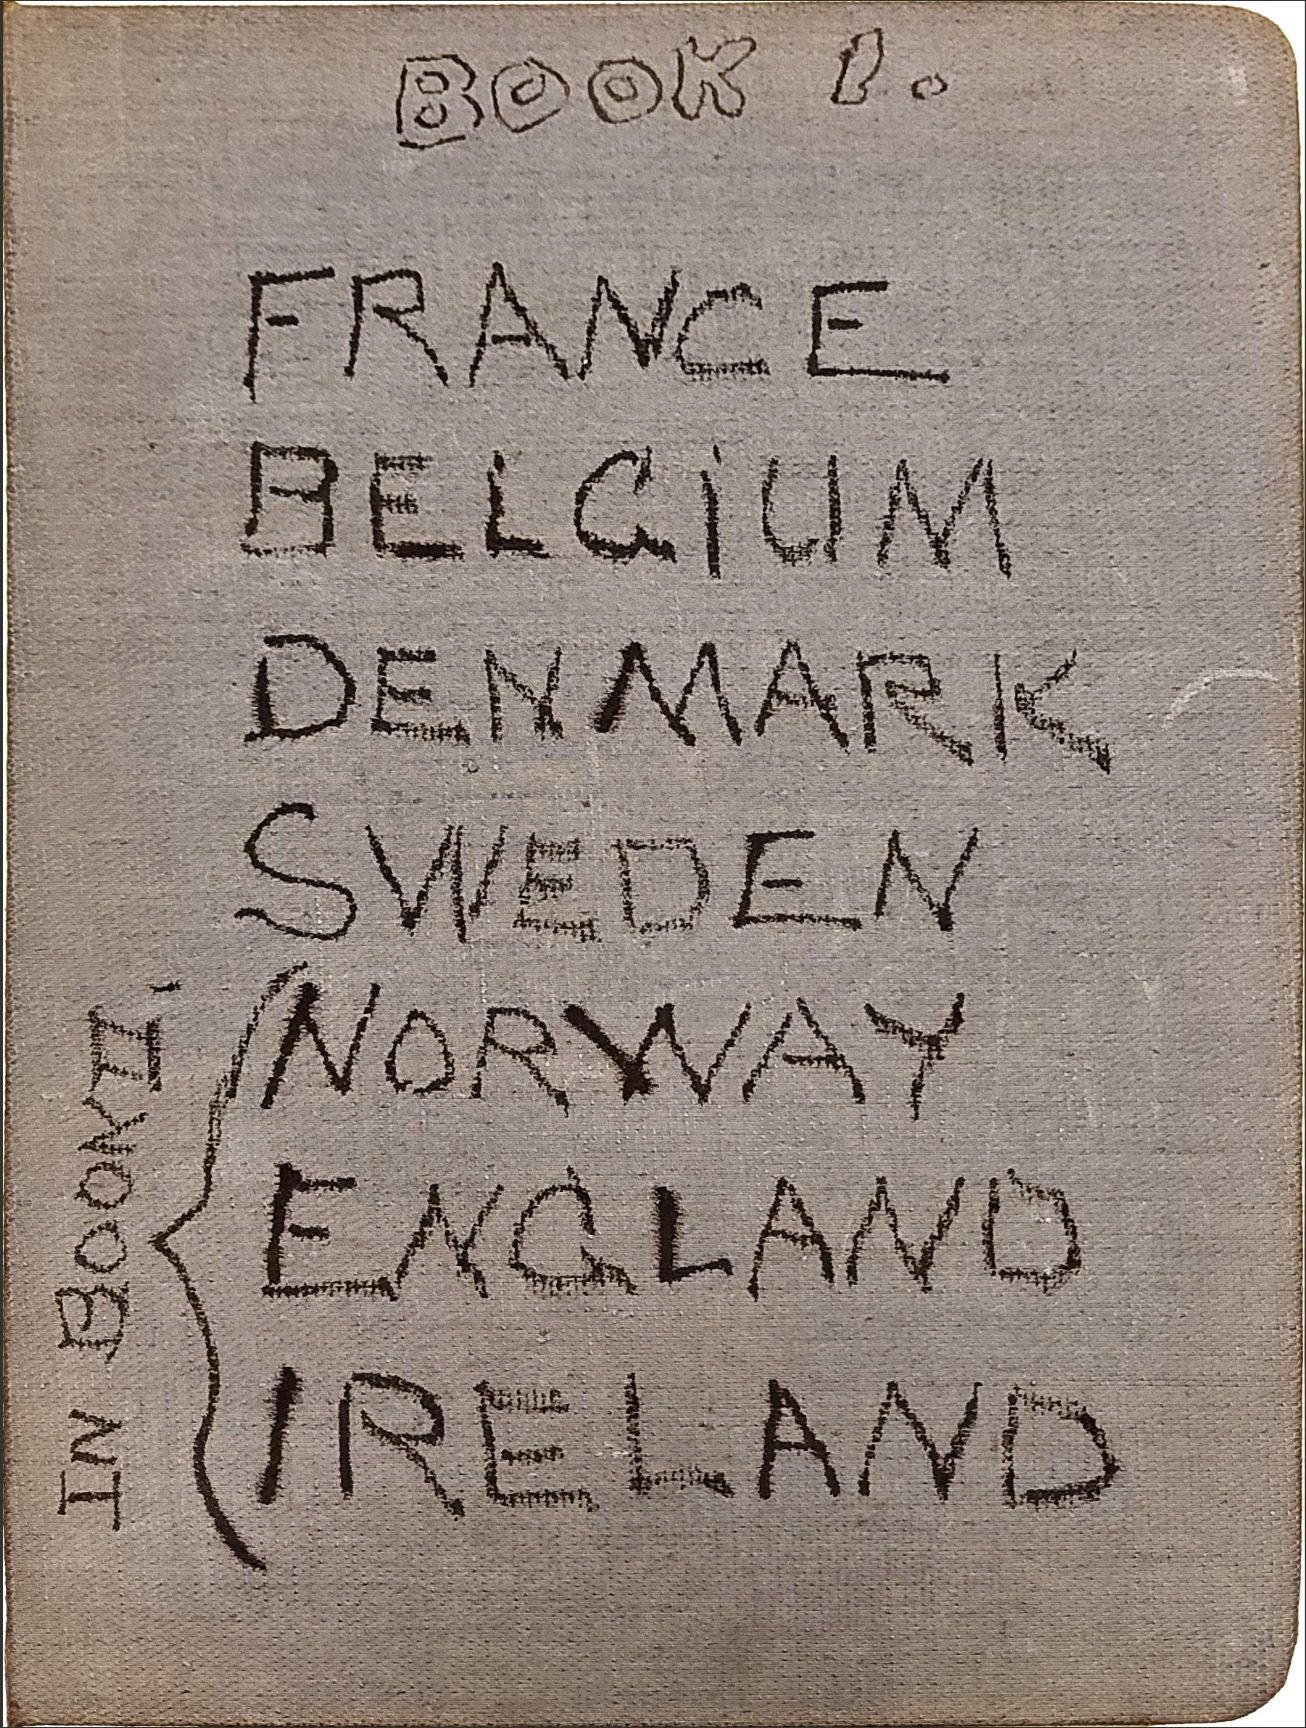 BOOK 1.
FRANCE
BELGIUM
DENMARK
SWEDEN
NORWAY
ENGLAND
IRELAND
IN BOOK II.